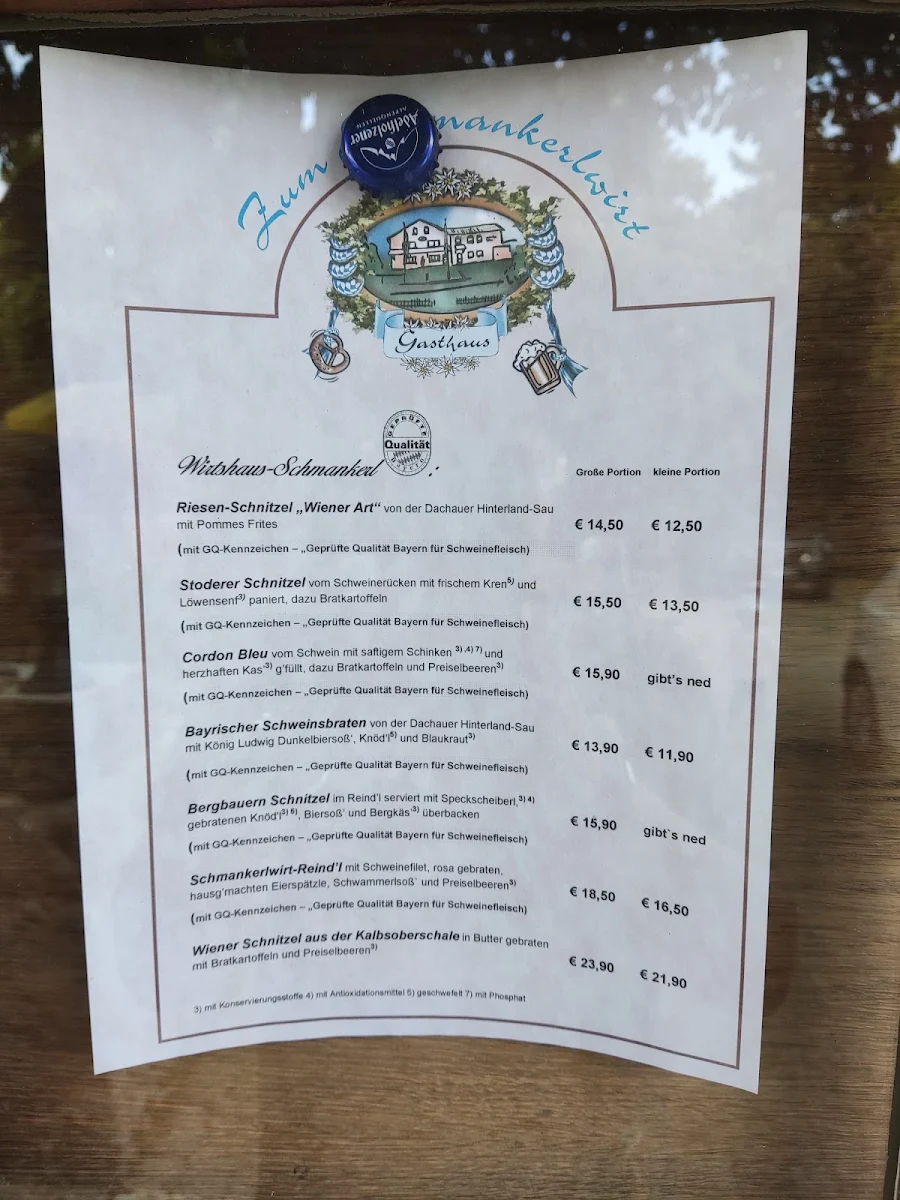 Adelholzener
ALPENQUELLEN
Zum mankerlwirt
Gasthaus
GEPRÜFTE
Qualität
BAYERN
Wirtshaus-Schmankerl :
Große Portion kleine Portion
Riesen-Schnitzel „Wiener Art“ von der Dachauer Hinterland-Sau
mit Pommes Frites
€ 14,50 € 12,50
(mit GQ-Kennzeichen – „Geprüfte Qualität Bayern für Schweinefleisch)
Stoderer Schnitzel vom Schweinerücken mit frischem Kren5) und
Löwensenf3) paniert, dazu Bratkartoffeln
€ 15,50 € 13,50
(mit GQ-Kennzeichen – „Geprüfte Qualität Bayern für Schweinefleisch)
Cordon Bleu vom Schwein mit saftigem Schinken 3) ,4) 7) und
herzhaften Kas'3) g'füllt, dazu Bratkartoffeln und Preiselbeeren3)
€ 15,90 gibt's ned
(mit GQ-Kennzeichen – „Geprüfte Qualität Bayern für Schweinefleisch)
Bayrischer Schweinsbraten von der Dachauer Hinterland-Sau
mit König Ludwig Dunkelbiersoß', Knöd'l5) und Blaukraut3)
€ 13,90 € 11,90
(mit GQ-Kennzeichen – „Geprüfte Qualität Bayern für Schweinefleisch)
Bergbauern Schnitzel im Reind'l serviert mit Speckscheiberl,3) 4)
gebratenen Knöd'l3) 5), Biersoß' und Bergkäs'3) überbacken
€ 15,90 gibt`s ned
(mit GQ-Kennzeichen – „Geprüfte Qualität Bayern für Schweinefleisch)
Schmankerlwirt-Reind'l mit Schweinefilet, rosa gebraten,
hausg'machten Eierspätzle, Schwammerlsoß` und Preiselbeeren3)
€ 18,50 € 16,50
(mit GQ-Kennzeichen – „Geprüfte Qualität Bayern für Schweinefleisch)
Wiener Schnitzel aus der Kalbsoberschale in Butter gebraten
mit Bratkartoffeln und Preiselbeeren3)
€ 23,90 € 21,90
3) mit Konservierungsstoffe 4) mit Antioxidationsmittel 5) geschwefelt 7) mit Phosphat